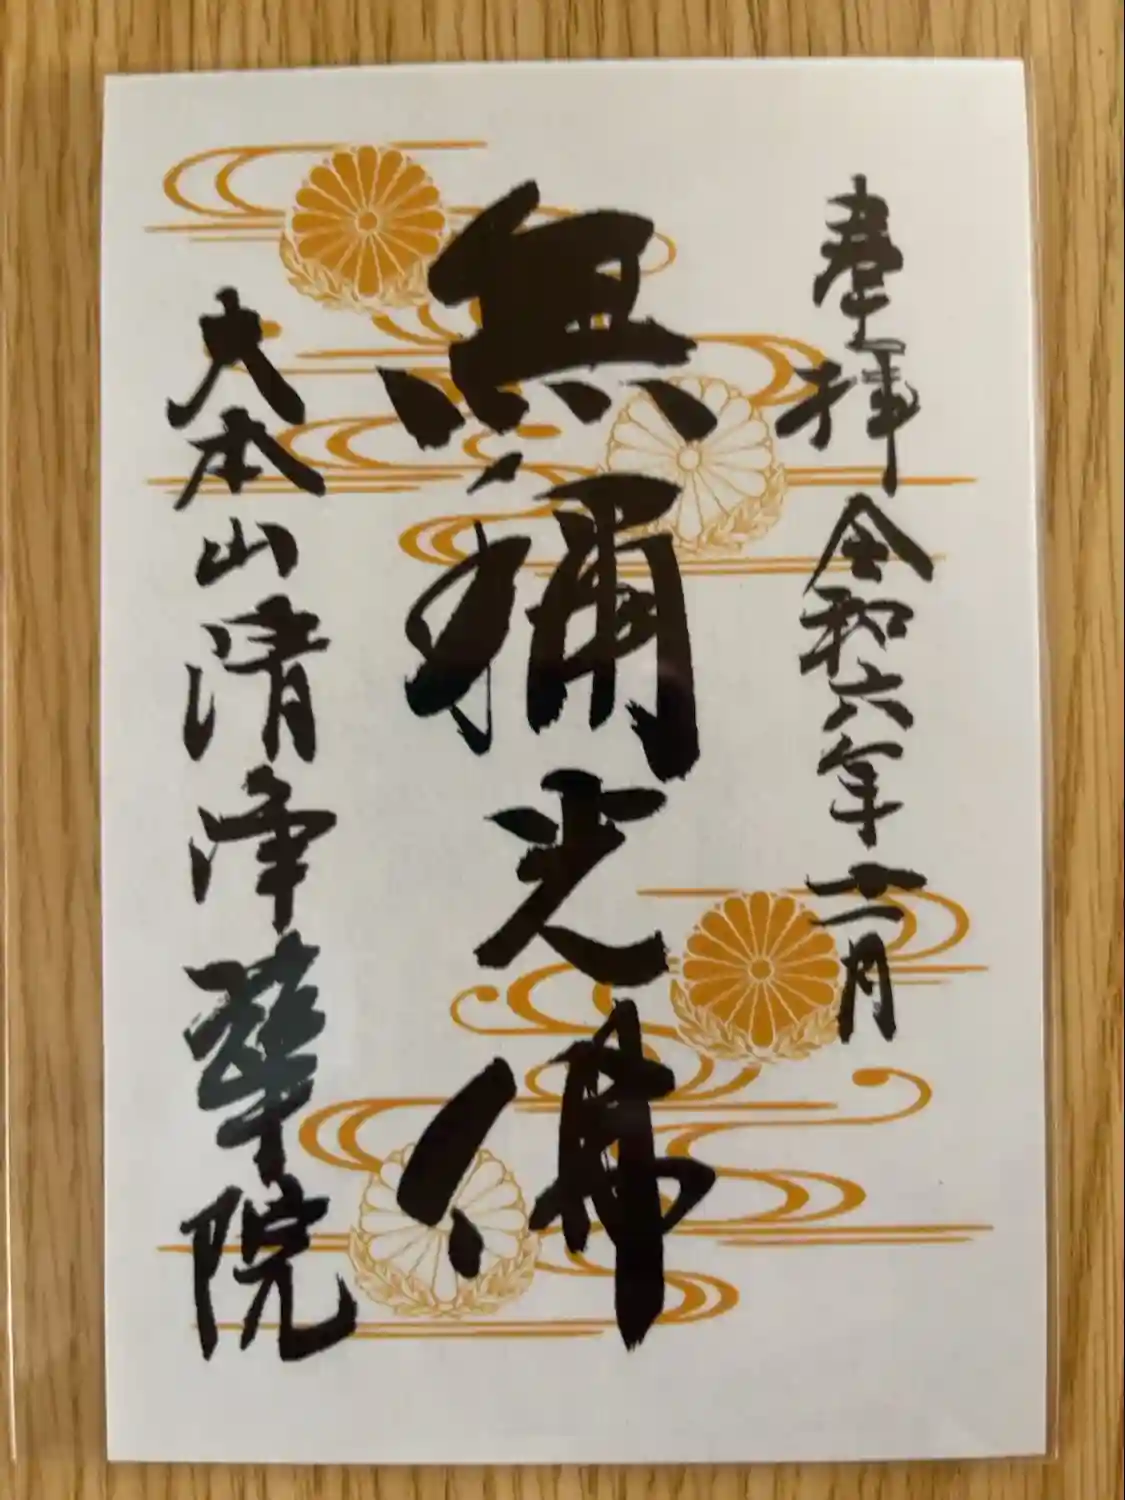 奉拝 令和六年十二月
無稱光佛
大本山清浄華院